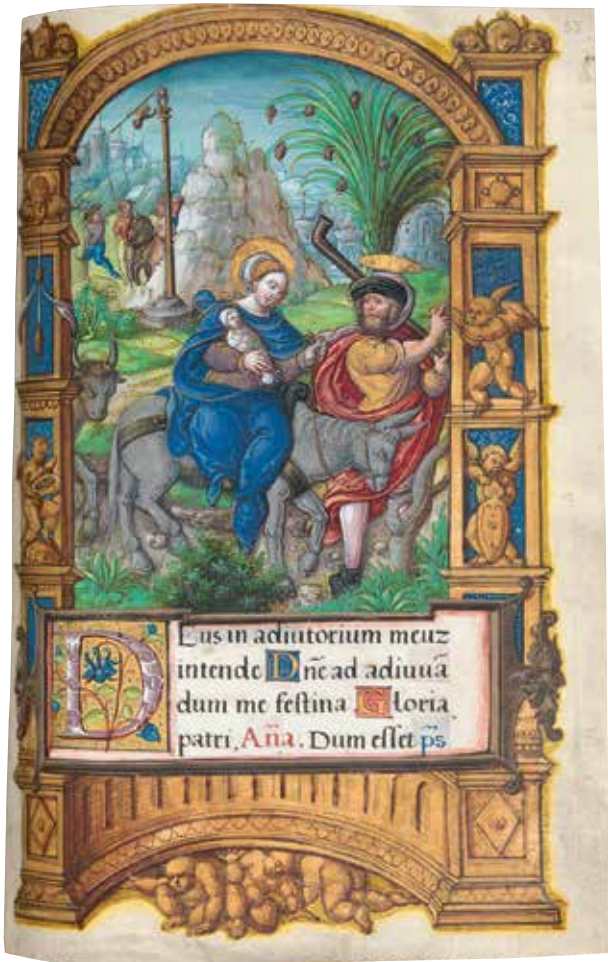 Deus in adiutorium meuz
intende Dñe ad adiuuã
dum me festina Gloria
patri. Aña. Dum esset p̃s